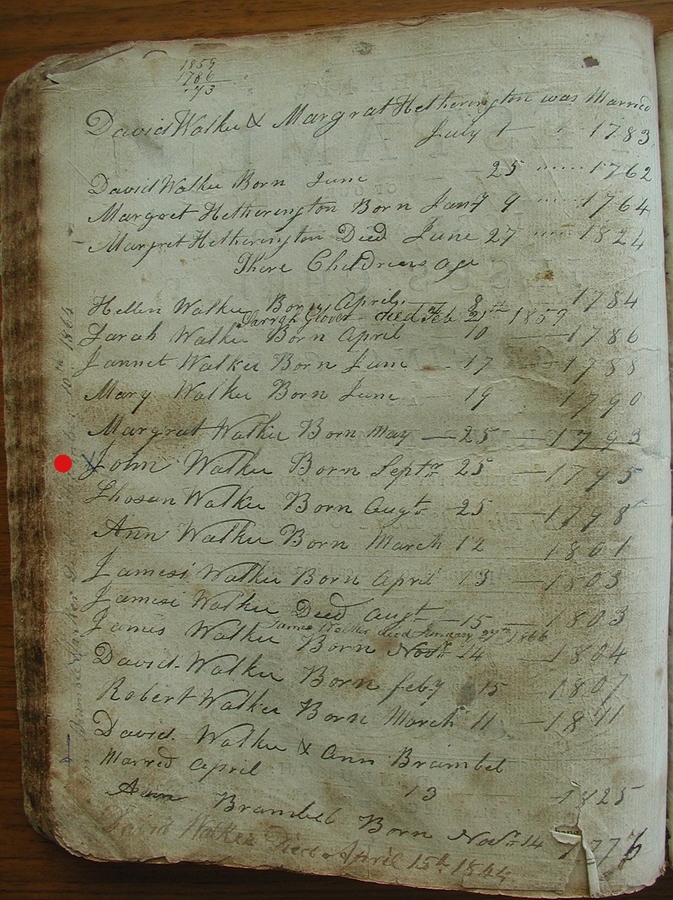 1859
1786
73
David Walker & Margrat Hetherington was Married
July 1 1783
David Walker Born June 25 1762
Margret Hetherington Born Jany 9 1764
Margret Hetherington Died June 27 1824
There Childrens age
Hellen Walker Born April 8 1784
Sarrah Glover died Feb 21th 1859
Sarah Walker Born April 10 1786
Jannet Walker Born June 17 1788
Mary Walker Born June 19 1790
Margrat Walker Born May 25 1793
X John Walker Born Septr 25 1795
Walker Born Augt 25 1798
Ann Walker Born March 12 1801
James Walker Born April 13 1803
James Walker Deed Augt 15 1803
James Walker died January 27th 1866
James Walker Born Novr 14 1804
David Walker Born feby 15 1807
Robert Walker Born March 11 1811
David Walker & Ann Brambel
Marred April 13 1825
Ann Brambel Born Novr 14 1776
David Walker Died April 15th 1864